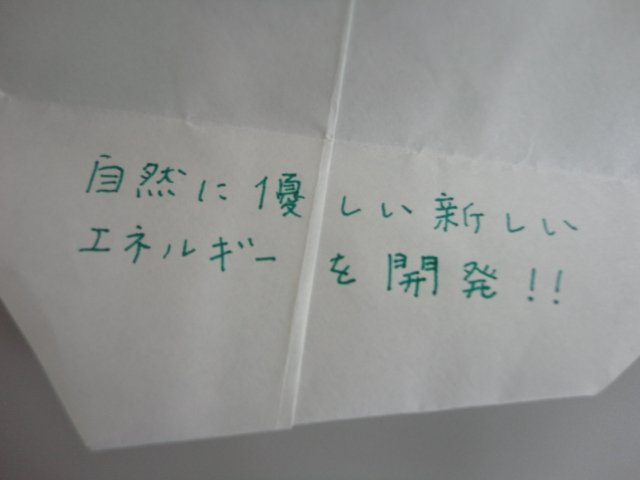 自然に優しい新しい
エネルギーを開発!!